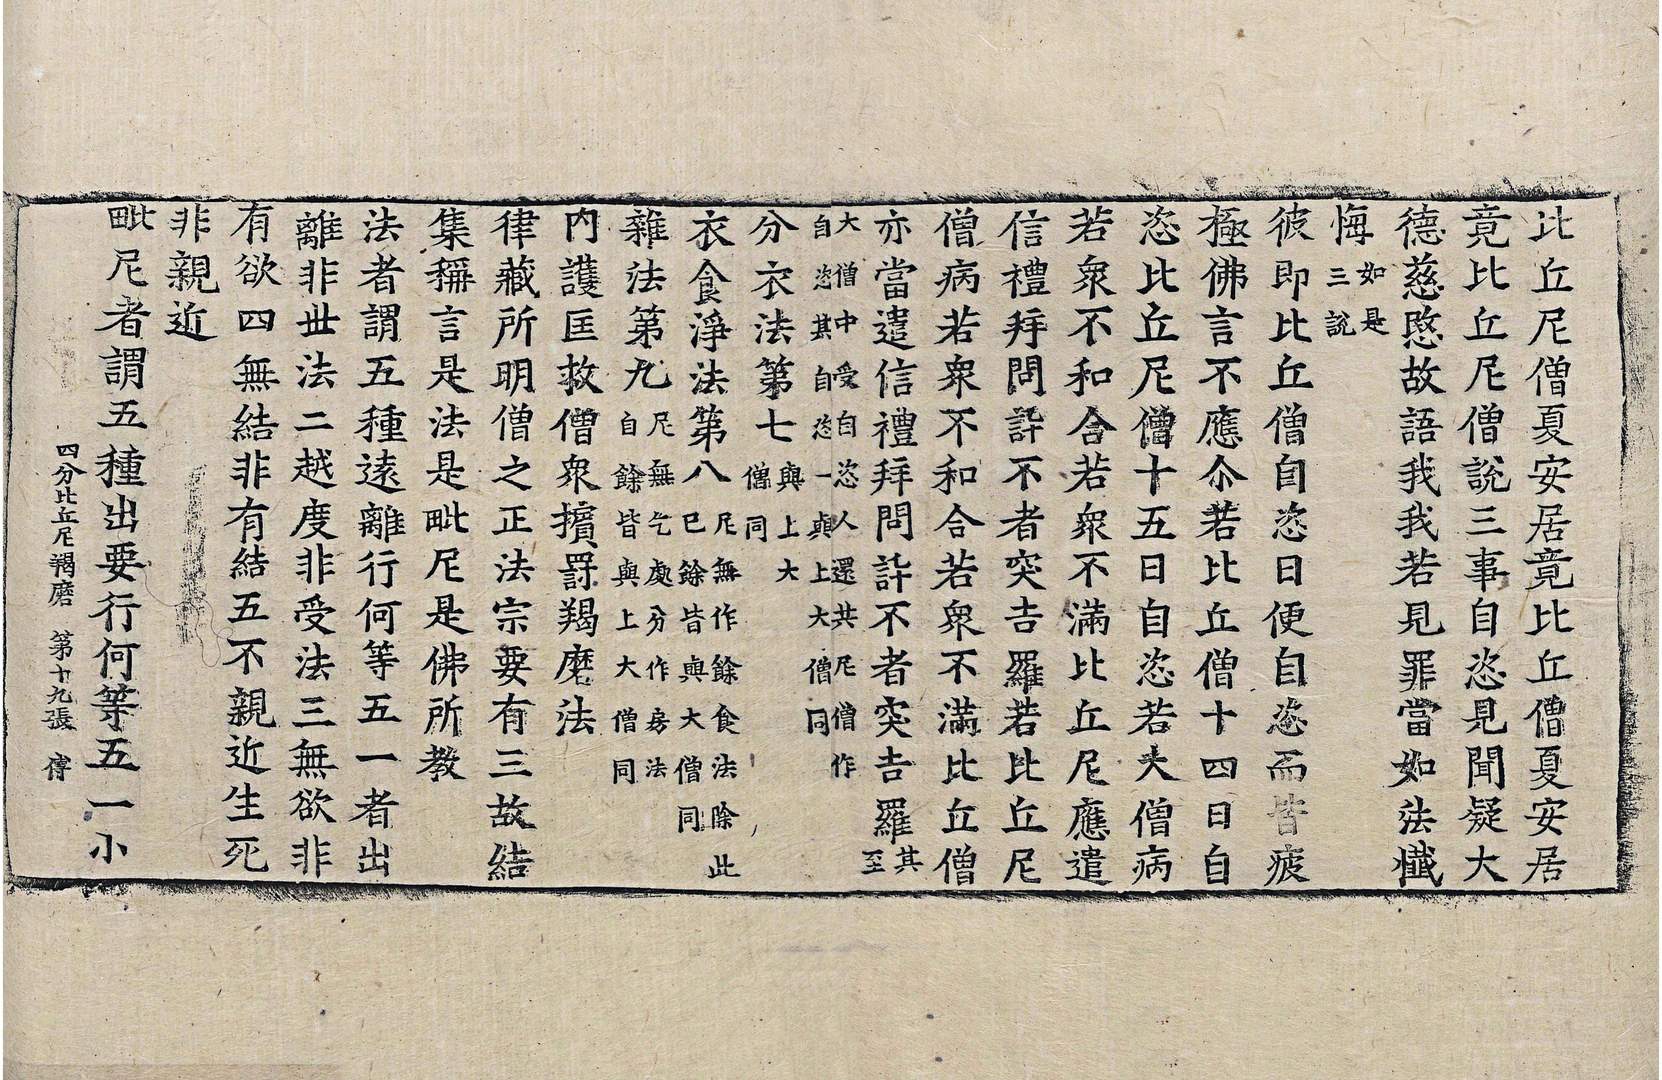 比丘尼僧夏安居竟比丘僧夏安居
竟比丘尼僧說三事自恣見聞疑大
德慈愍故語我我若見罪當如法懺
悔如是三說
彼即比丘僧自恣日便自恣而皆疲
極佛言不應尒若比丘僧十四日自
恣比丘尼僧十五日自恣若大僧病
若衆不和合若衆不滿比丘尼應遣
信禮拜問訊不者突吉羅若比丘尼
僧病若衆不和合若衆不滿比丘僧
亦當遣信禮拜問訊不者突吉羅其至
大僧中受自恣人還共尼僧作自恣其自恣一與上大僧同
分衣法第七與上大僧同
衣食淨法第八尼無作餘食法除此已餘皆與大僧同
雜法第九尼無乞處分作房法自餘皆與上大僧同
内護匡救僧衆擯罰羯磨法
律藏所明僧之正法宗要有三故結
集稱言是法是毗尼是佛所教
法者謂五種遠離行何等五一者出
離非世法二越度非受法三無欲非
有欲四無結非有結五不親近生死
非親近
毗尼者謂五種出要行何等五一小
四分比丘尼羯磨 第十九張 傳